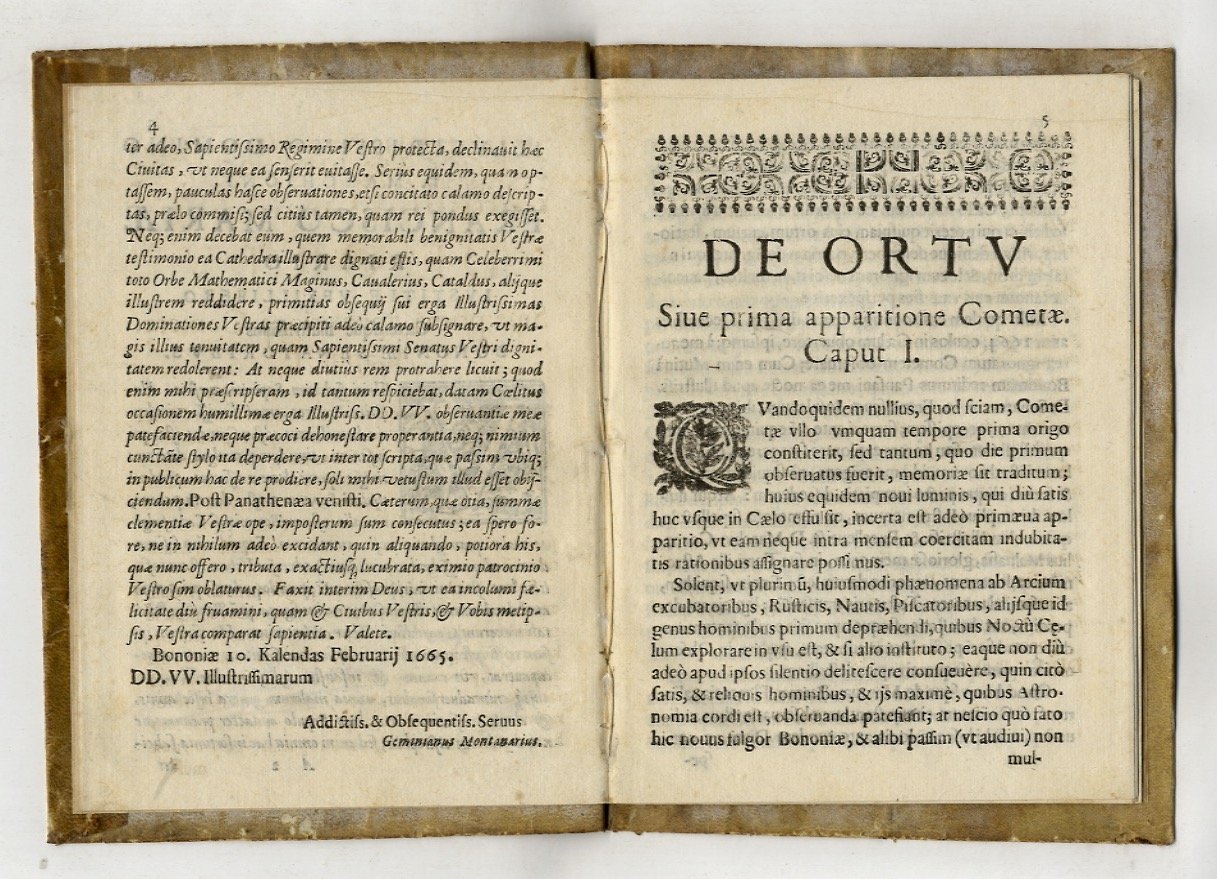 4
ter adeo, Sapientissimo Regimine Vestro protecta, declinauit hæc
Ciuitas, vt neque ea senserit euitasse. Seriùs equidem, quam op-
tassem, pauculas hasce obseruationes, etsi concitato calamo descrip-
tas, prælo commisi; sed citiùs tamen, quam rei pondus exegisset.
Neq; enim decebat eum, quem memorabili benignitatis Vestræ
testimonio ea Cathedra illustrare dignati estis, quam Celeberrimi
toto Orbe Mathematici Maginus, Caualerius, Cataldus, alijque
illustrem reddidere, primitias obsequij sui erga Illustrissimas
Dominationes Vestras præcipiti adeò calamo subsignare, vt ma-
gis illius tenuitatem, quam Sapientissimi Senatus Vestri digni-
tatem redolerent: At neque diutius rem protrahere licuit; quod
enim mihi præscripseram, id tantum respiciebat, datam Cælitus
occasionem humillimæ erga Illustriss. DD. VV. obseruantiæ meæ
patefaciendæ, neque præcoci dehonestare properantia, neq; nimium
cunctãte stylo ita deperdere, vt inter tot scripta, quæ passim vbiq;
in publicum hac de re prodiere, soli mihi vetustum illud esset obij-
ciendum. Post Panathenæa venisti. Cæterum, quæ otia, summæ
clementiæ Vestræ ope, imposterum sum consecutus; ea spero fo-
re, ne in nihilum adeò excidant, quin aliquando, potiora his,
quæ nunc offero, tributa, exactiusq; lucubrata, eximio patrocinio
Vestro sim oblaturus. Faxit interim Deus, vt ea incolumi fæ-
licitate diù fruamini, quam & Ciuibus Vestris, & Vobis metip-
sis, Vestra comparat sapientia. Valete.
Bononiæ 10. Kalendas Februarij 1665.
DD. VV. Illustrissimarum
Addictiss. & Obsequentiss. Seruus
Geminianus Montanarius.
5
DE ORTV
Siue prima apparitione Cometæ.
Caput I.
QVandoquidem nullius, quod sciam, Come-
tæ vllo vmquam tempore prima origo
constiterit, sed tantum, quo die primum
obseruatus fuerit, memoriæ sit traditum;
huius equidem noui luminis, qui diù satis
huc vsque in Cælo effulsit, incerta est adeò primæua ap-
paritio, vt eam neque intra mensem coercitam indubita-
tis rationibus assignare possimus.
Solent, vt plurimũ, huiusmodi phænomena ab Arcium
excubatoribus, Rusticis, Nautis, Piscatoribus, alijsque id
genus hominibus primum depræhendi, quibus Noctù Cę-
lum explorare in vsu est, & si alio instituto; eaque non diù
adeò apud ipsos silentio delitescere consueuère, quin citò
satis, & reliquis hominibus, & ijs maximè, quibus Astro-
nomia cordi est, obseruanda patefiant; at nescio quò fato
hic nouus fulgor Bononiæ, & alibi passim (vt audiui) non
mul-